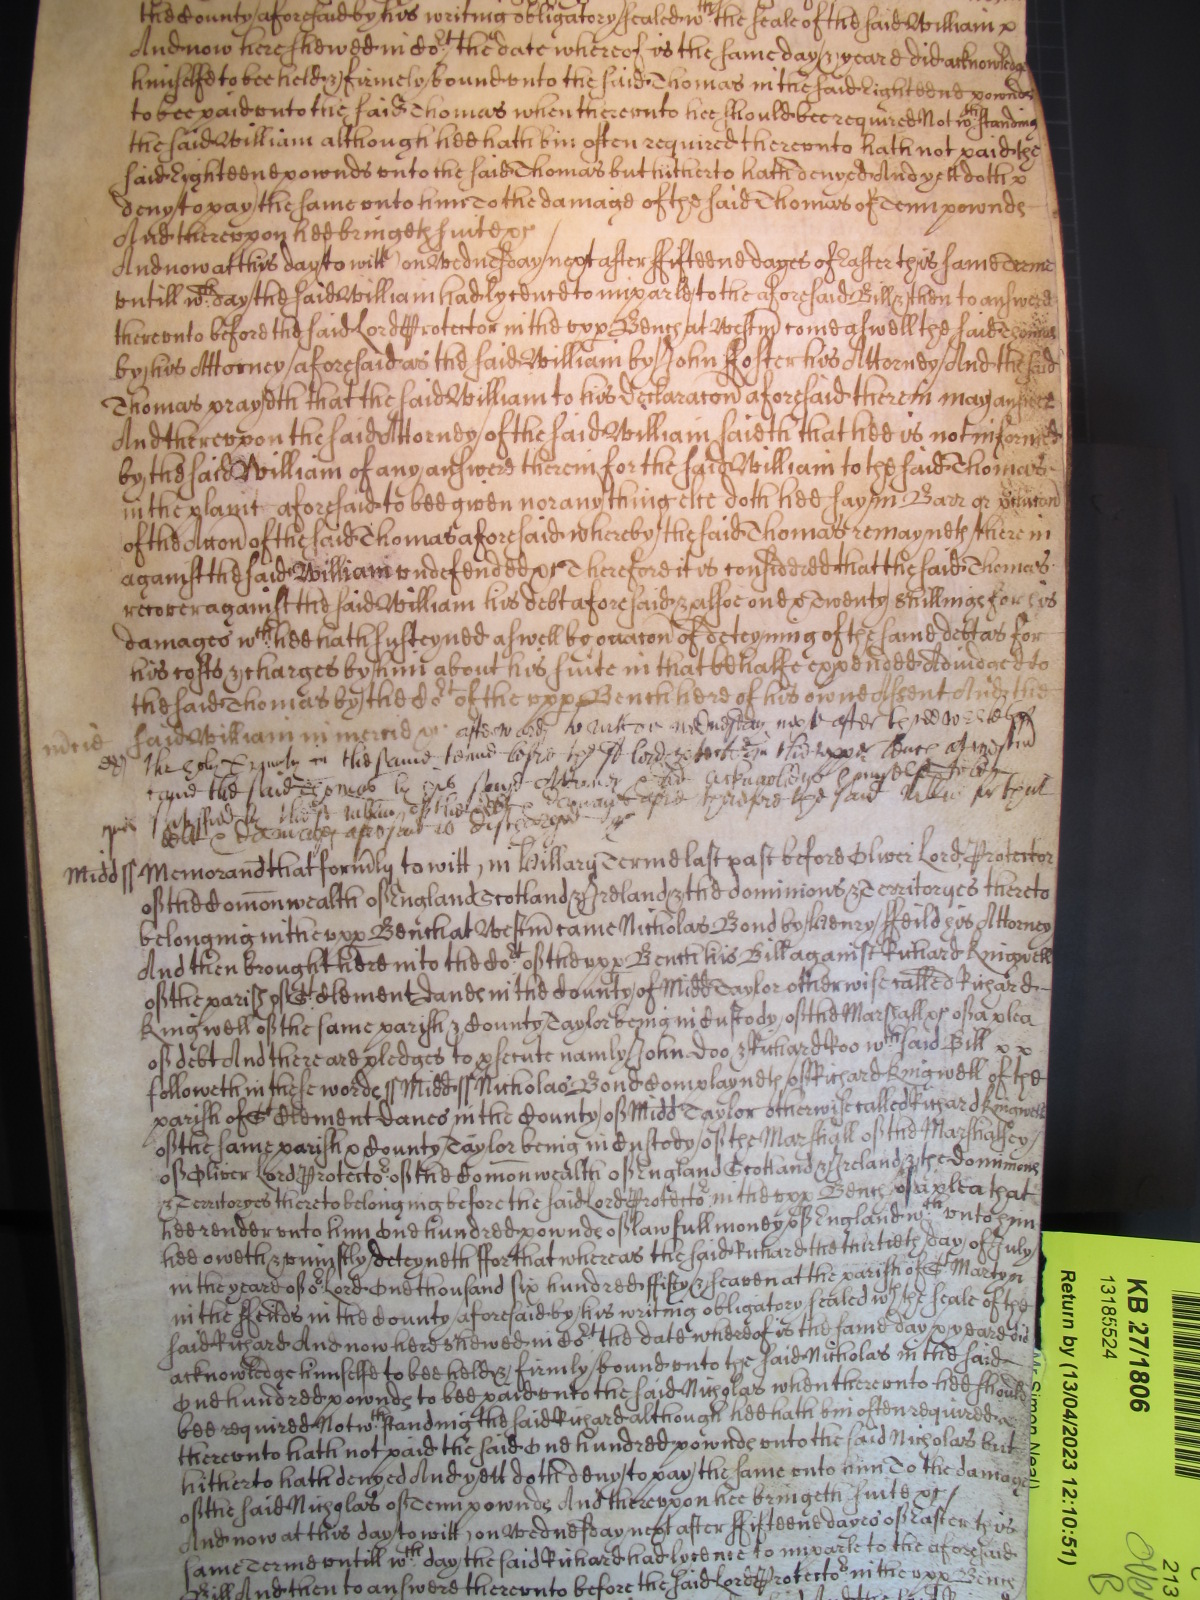 the County aforesaid by his writing obligatory sealed wth the seale of the said William x
And now here shewed in Cot the date whereof is the same day & yeare did acknowledge
himselfe to bee held & firmely bound unto the said Thomas in the said Eighteene pownds
to bee paid unto the said Thomas when thereunto hee should bee required Notwthstanding
the said William although hee hath bin often required thereunto hath not paid the
said Eighteene pownds unto the said Thomas but hitherto hath denyed And yett doth x
deny to pay the same unto him To the damage of the said Thomas of Tenn pownds
And thereupon hee bringeth suite &c
And now at this day to witt on Wednesday next after ffifteene dayes of Easter this same Terme
untill wch day the said William had lycence to imparle to the aforesaid Bill & then to answere
thereunto before the said Lord Protector in the upp Bench at Westm come aswell the said Thomas
by his Attorney aforesaid as the said William by John ffoster his Attorney And the said
Thomas prayeth that the said William to his Declaracon aforesaid therein may answere
And thereupon the said Attorney of the said William saith that hee is not informed
by the said William of any answere therein for the said William to the said Thomas
in the plaint aforesaid to bee given nor any thing else doth hee say in Barr or
of the Accon of the said Thomas aforesaid whereby the said Thomas remayneth therein
against the said William undefended &c Therefore it is considered that the said Thomas
recover against the said William his debt aforesaid & alsoe one & Twenty shillings for his
damages wch hee hath susteyned aswell by occacon of deteyning of the same debt as for
his costs & charges by him about his suite in that behalfe expended Adiudged to
the said Thomas by the Cot of the upp Bench here of his owne Assent And the
said William in mercie &c afterwards to witt on wednesday next after
the holy Trinity in the same terme before the sd lord protector in the upper bench at westm
came the said Thomas by his said Attorney & did acknowledge himselfe to bee
satisfied by the sd William of the debt & damages aforesd therefore the said William of that
debt & damages aforesaid is discharged &c
Midd ss Memorand that formly to witt in Hillary Terme last past before Oliver Lord Protector
of the Comonwealth of England Scotland & Ireland & the dominions & Territoryes thereto
belonging in the upp Bench at Westm came Nicholas Bond by Henry ffeild his Attorney
And then brought here into the Cot of the upp Bench his Bill against Richard Kingwell
of the parish of St Clement Danes in the County of Midd Taylor otherwise called Richard
Kingwell of the same parish & County Taylor being in custody of the Marshall &c of a plea
of debt And there are pledges to psecute namely John Doo & Richard Roo wch said Bill x x
followeth in these words ss Midd ss Nicholas Bond complayneth of Richard Kingwell of the
parish of St Clement Danes in the County of Midd Taylor otherwise called Richard Kingwell
of the same parish & County Taylor being in custody of the Marshall of the Marshalsey
of Oliver Lord Protector of the Comonwealth of England Scotland & Ireland & the dominions
& Territoryes thereto belonging before the said Lord Protector in the upp Bench of a plea that
hee render unto him One hundred pownds of lawfull money of England wch unto him
hee oweth & uniustly deteyneth ffor that whereas the said Richard the thirtieth day of July
in the yeare of or Lord One thousand six hundred fifty & seaven at the parish of St Martyn
in the ffeilds in the County aforesaid by his writing obligatory sealed wth the seale of the
said Richard And now here shewed in Cot the date whereof is the same day & yeare did
acknowledge himselfe to bee held & firmly bound unto the said Nicholas in the said
One hundred pownds to bee paid unto the said Nicholas when thereunto hee should
bee required Notwthstanding the said Richard although hee hath bin often required
thereunto hath not paid the said One hundred pownds unto the said Nicholas but
hitherto hath denyed And yett doth deny to pay the same unto him To the damage
of the said Nicholas of Tenn pownds And thereupon hee bringeth suite &c
And now at this day to witt on Wednesday next after ffifteene dayes of Easter this
same Terme untill wch day the said Richard had lycence to imparle to the aforesaid
Bill And then to answere thereunto before the said Lord Protector in the upp Bench
KB 27/1806
13185524
Return by (13/04/2023 12:10:51)
Mr Simon Neal
213